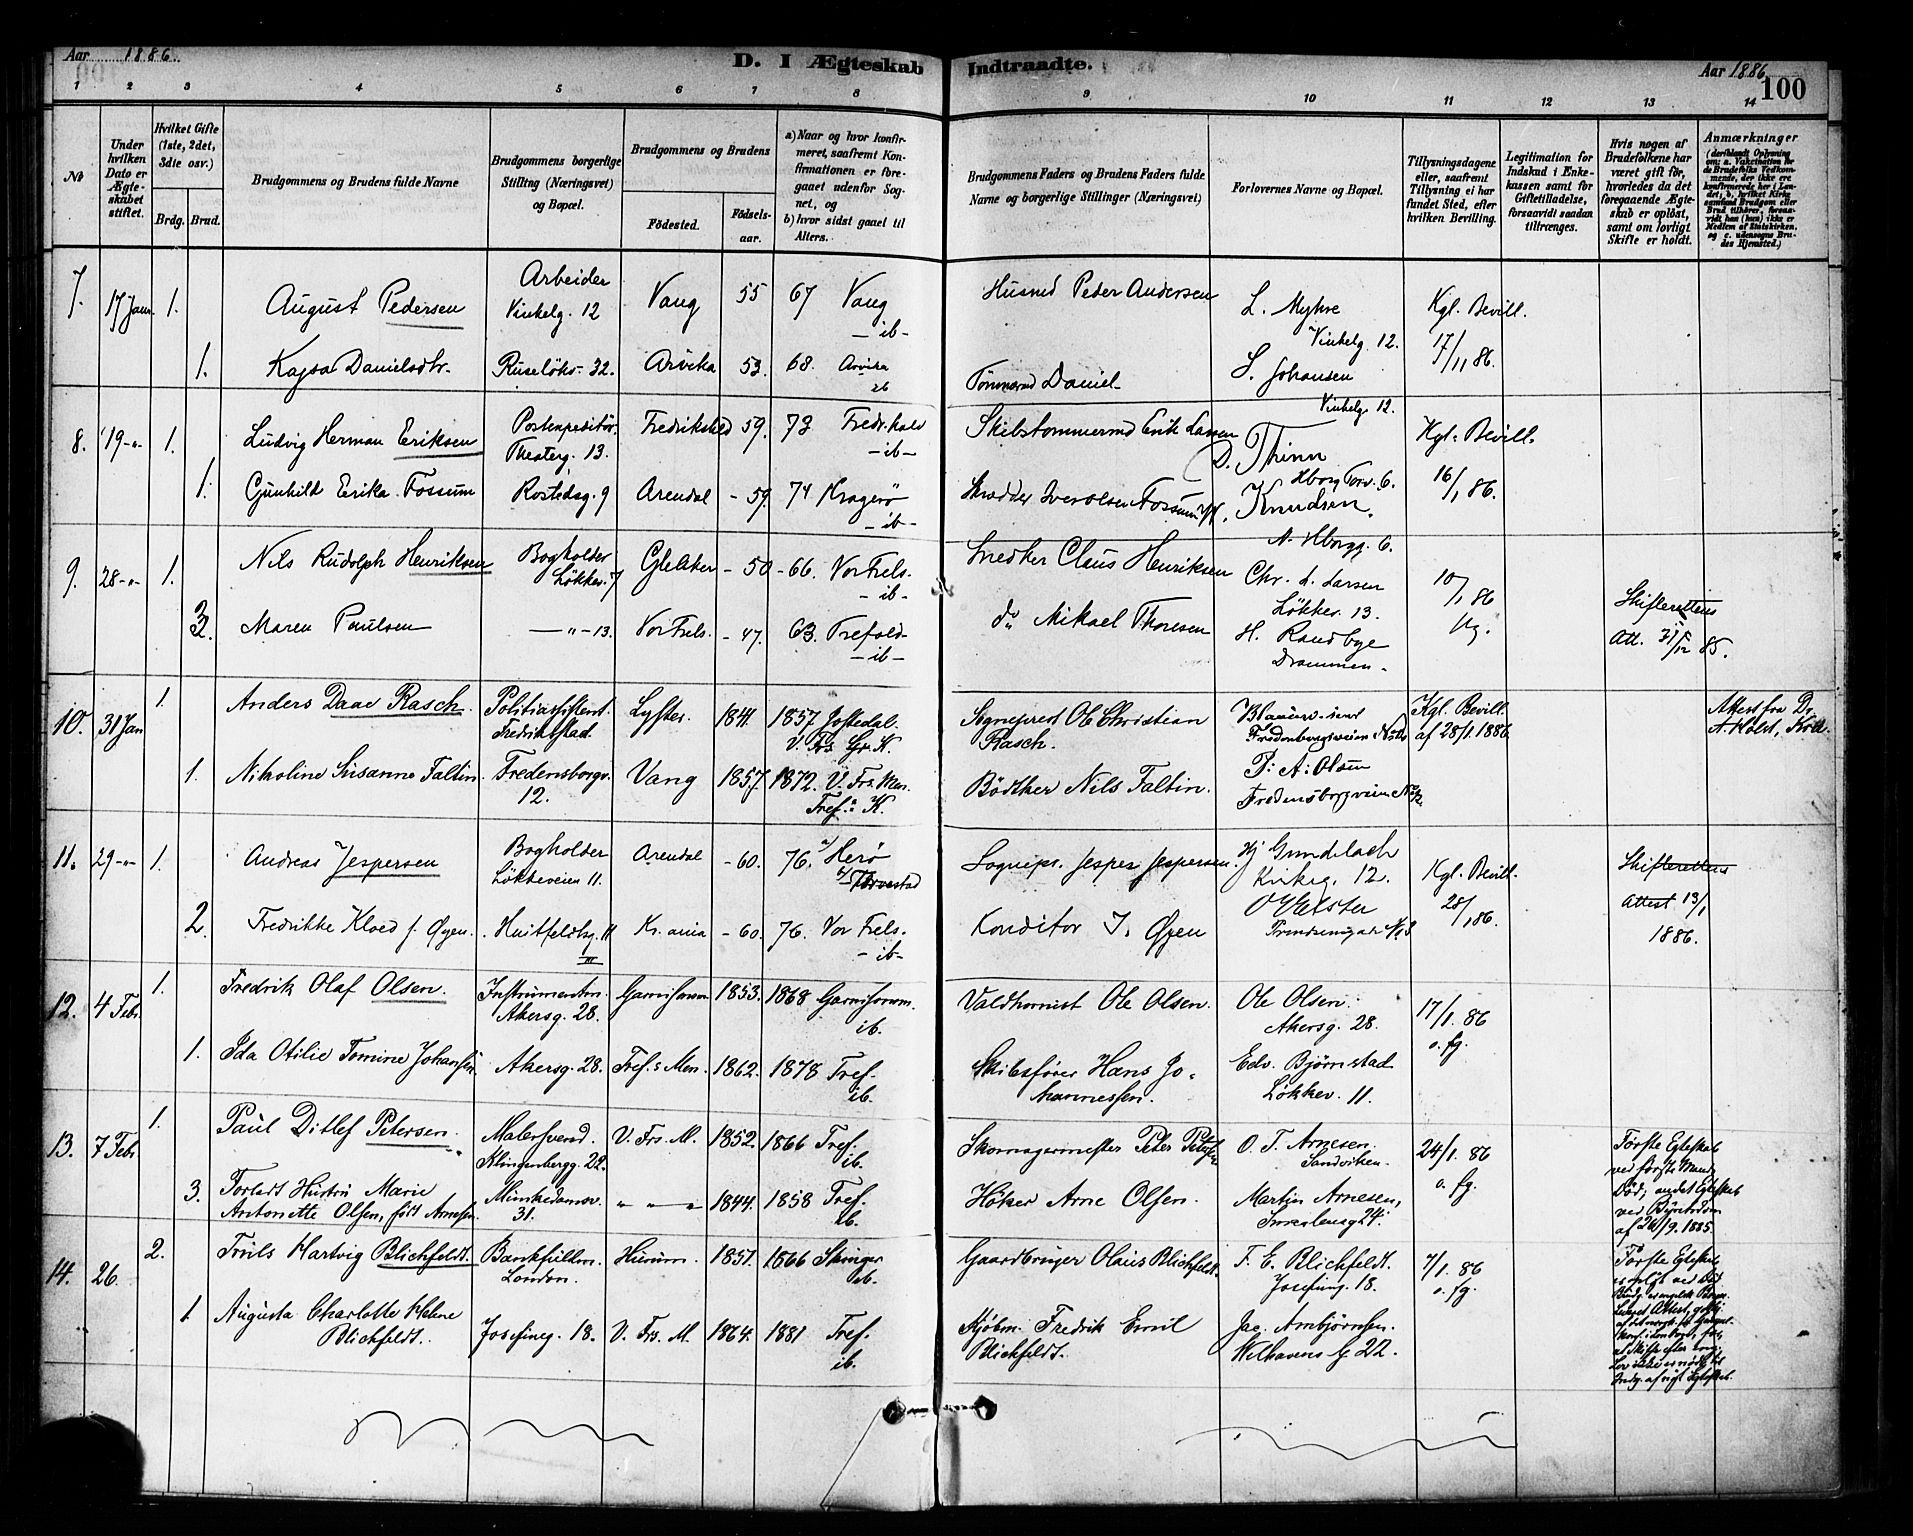 Aar 1886.
D. I Ægteskab Indtraadte.
Aar 1886
100
1 2 3 4 5 6 7 8 9 10 11 12 13 14
No
Under hvilken Dato er Ægteskabet stiftet.
Hvilket Gifte (1ste, 2det, 3die osv.)
Brdg. Brud.
Brudgommens og Brudens fulde Navne
Brudgommens borgerlige Stilling (Næringsvei) og Bopæl.
Brudgommens og Brudens
Fødested. Fødselsaar.
a) Naar og hvor konfirmeret, saafremt Konfirmationen er foregaaet udenfor Sognet, og
b) hvor sidst gaaet til Alters.
Brudgommens Faders og Brudens Faders fulde Navne og borgerlige Stillinger (Næringsvei)
Forlovernes Navne og Bopæl.
Tillysningsdagene eller, saafremt Tillysning ei har fundet Sted, efter hvilken Bevilling.
Legitimation for Indskud i Enkekassen samt for Giftetilladelse, forsaavidt saadan tiltrænges.
Hvis nogen af Brudefolkene har været gift før, hvorledes da det foregaaende Ægteskab er opløst, samt om lovligt Skifte er holdt.
Anmærkninger
(deriblandt Oplysning om: a. Vakcination for de Brudefolks Vedkommende, der ikke ere konfirmerede her i Landet; b. hvilket Kirkesamfund Brudgom eller Brud tilhører, forsaavidt han (hun) ikke er Medlem af Statskirken, og c. udensogns Brudes Hjemsted.)
7. 17 Janr. 1. August Pedersen Arbeider Vinkelg. 12 Vang 55 67 Vang -ib- Husmd Peder Andersen L. Myhre Vinkelg. 12. Kgl. Bevill. 17/1 86.
1. Kajsa Danielsdtr. Ruseløkv. 32. Arvika 53. 68. Arvika ib Tømmermd Daniel S. Johansen Vinkelg. 12.
8. 19-"- 1. Ludvig Herman Eriksen Postexpeditør. Theaterg. 13. Fredrikshald 59. 73 Fredr.hald -ib- Skibstømmermd Erik Larsen D. Thinn Hborg Torv 6. Kgl. Bevill. 16/1 86.
1. Gunhild Erika Fossum Rostedsg. 9 Arendal - 59. 74 Kragerø -ib- Skrædder Iver Olsen Fossum Knudsen. N. Hborgg. 6.
9. 28-"- 1. Nils Rudolph Henriksen Bogholder Løkkev. 7 Glekker - 50 - 66. Vor Frels. -ib- Snedker Claus Henriksen Chr. L. Larsen Løkkev. 13. 10/1 86
3. Maren Paulsen -"- 13. Vor Frels. - 47. 63. Trefold- -ib- do Mikael Thoresen H. Randbye Drammen. Skifterettens Att. 31/12 85.
10. 31 Jan 1. Anders Daae Rasch. Politiassistent. Fredrikstad. Lyster. 1841. 1857. Jostedal. V. Frs Gr. K. Sogneprest Ole Christian Rasch. Kgl. Bevill. af 28/1. 1886. Attest fra Dr. A. Holst,
1. Nikoline Susanne Faltin. Fredensborgv. 12. Vang 1857. 1872. V. Frs. Men. Tref.s K. Bødker Nils Faltin. P: A: Olsen Fredensborgveien
11. 29-"- 1. Andreas Jespersen Bogholder Løkkeveien 11. Arendal - 60. 76. a) Herø b) Torvestad Sognepr. Jesper Jespersen. Hj Gundelach Kirkeg. 12. Kgl. Bevill. 28/1 86. Skifterettens Attest 13/1 1886.
2. Fredrikke Kloed f. Øyen. Huitfeldtsg. 11 III Kr.ania - 60. 76. Vor Frels. -ib- Konditor J. Øyen
12. 4 Febr. 1. Fredrik Olaf Olsen. Instrumentm. Akersg. 28. Garnisonm. 1853. 1868 Garnisonm. ib. Valdhornist Ole Olsen. Ole Olsen. Akersg. 28. 17/1. 86 o. fg.
1. Ida Otilie Tomine Johannesen Akersg. 28. Tref.s Men. 1862. 1878 Tref. ib. Skibsfører Hans Johannessen. Edv. Bjørnstad Løkkev. 11.
13. 7 Febr. 1. Paul Ditlef Petersen. Malersvend. Klingenbergg. 22. V. Frs. M. 1852. 1866 Tref. ib. Skomagermester Peter Petersen O. T. Arnesen. Sandviken. 24/1. 86 o. fg. Første Egteskab ved første Mands Død; andet Egteskab ved af 26/9. 1885.
3. Forladt Hustru Marie Antonette Olsen, født Arnesen. Munkedamsv. 31. " " " 1844. 1858 Tref. ib. Høker Arne Olsen. Martin Arnesen,
14. 26. 2. Truls Hartvig Blichfeldt. Bankfuldm. London. Hurum. 1851. 1866 Skinger ib. Gaardbruger Olaus Blichfeldt. F. E. Blichfeldt. Josefineg. 18. 7/1. 86 o. fg. Første Egteskab
1. Augusta Charlotte Helene Blichfeldt. Josefineg. 18. V. Frs. M. 1864. 1881 Tref. ib. Kjøbm. Fredrik Emil Blichfeldt. Jac. Ambjørnsen. Welhavens G. 22.